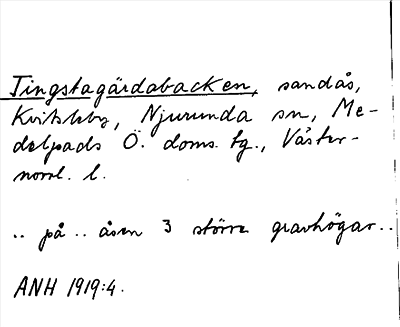 Tingstagärdabacken, sandås,
Kvitsleby, Njurunda sn, Me-
delpads Ö. doms. tg., Väster-
norrl. l.
.. på .. åsen 3 större gravhögar..
ANH 1919:4.